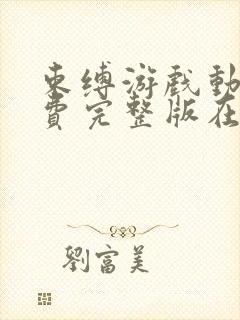 束缚游戏动
费完整版在
劉富美